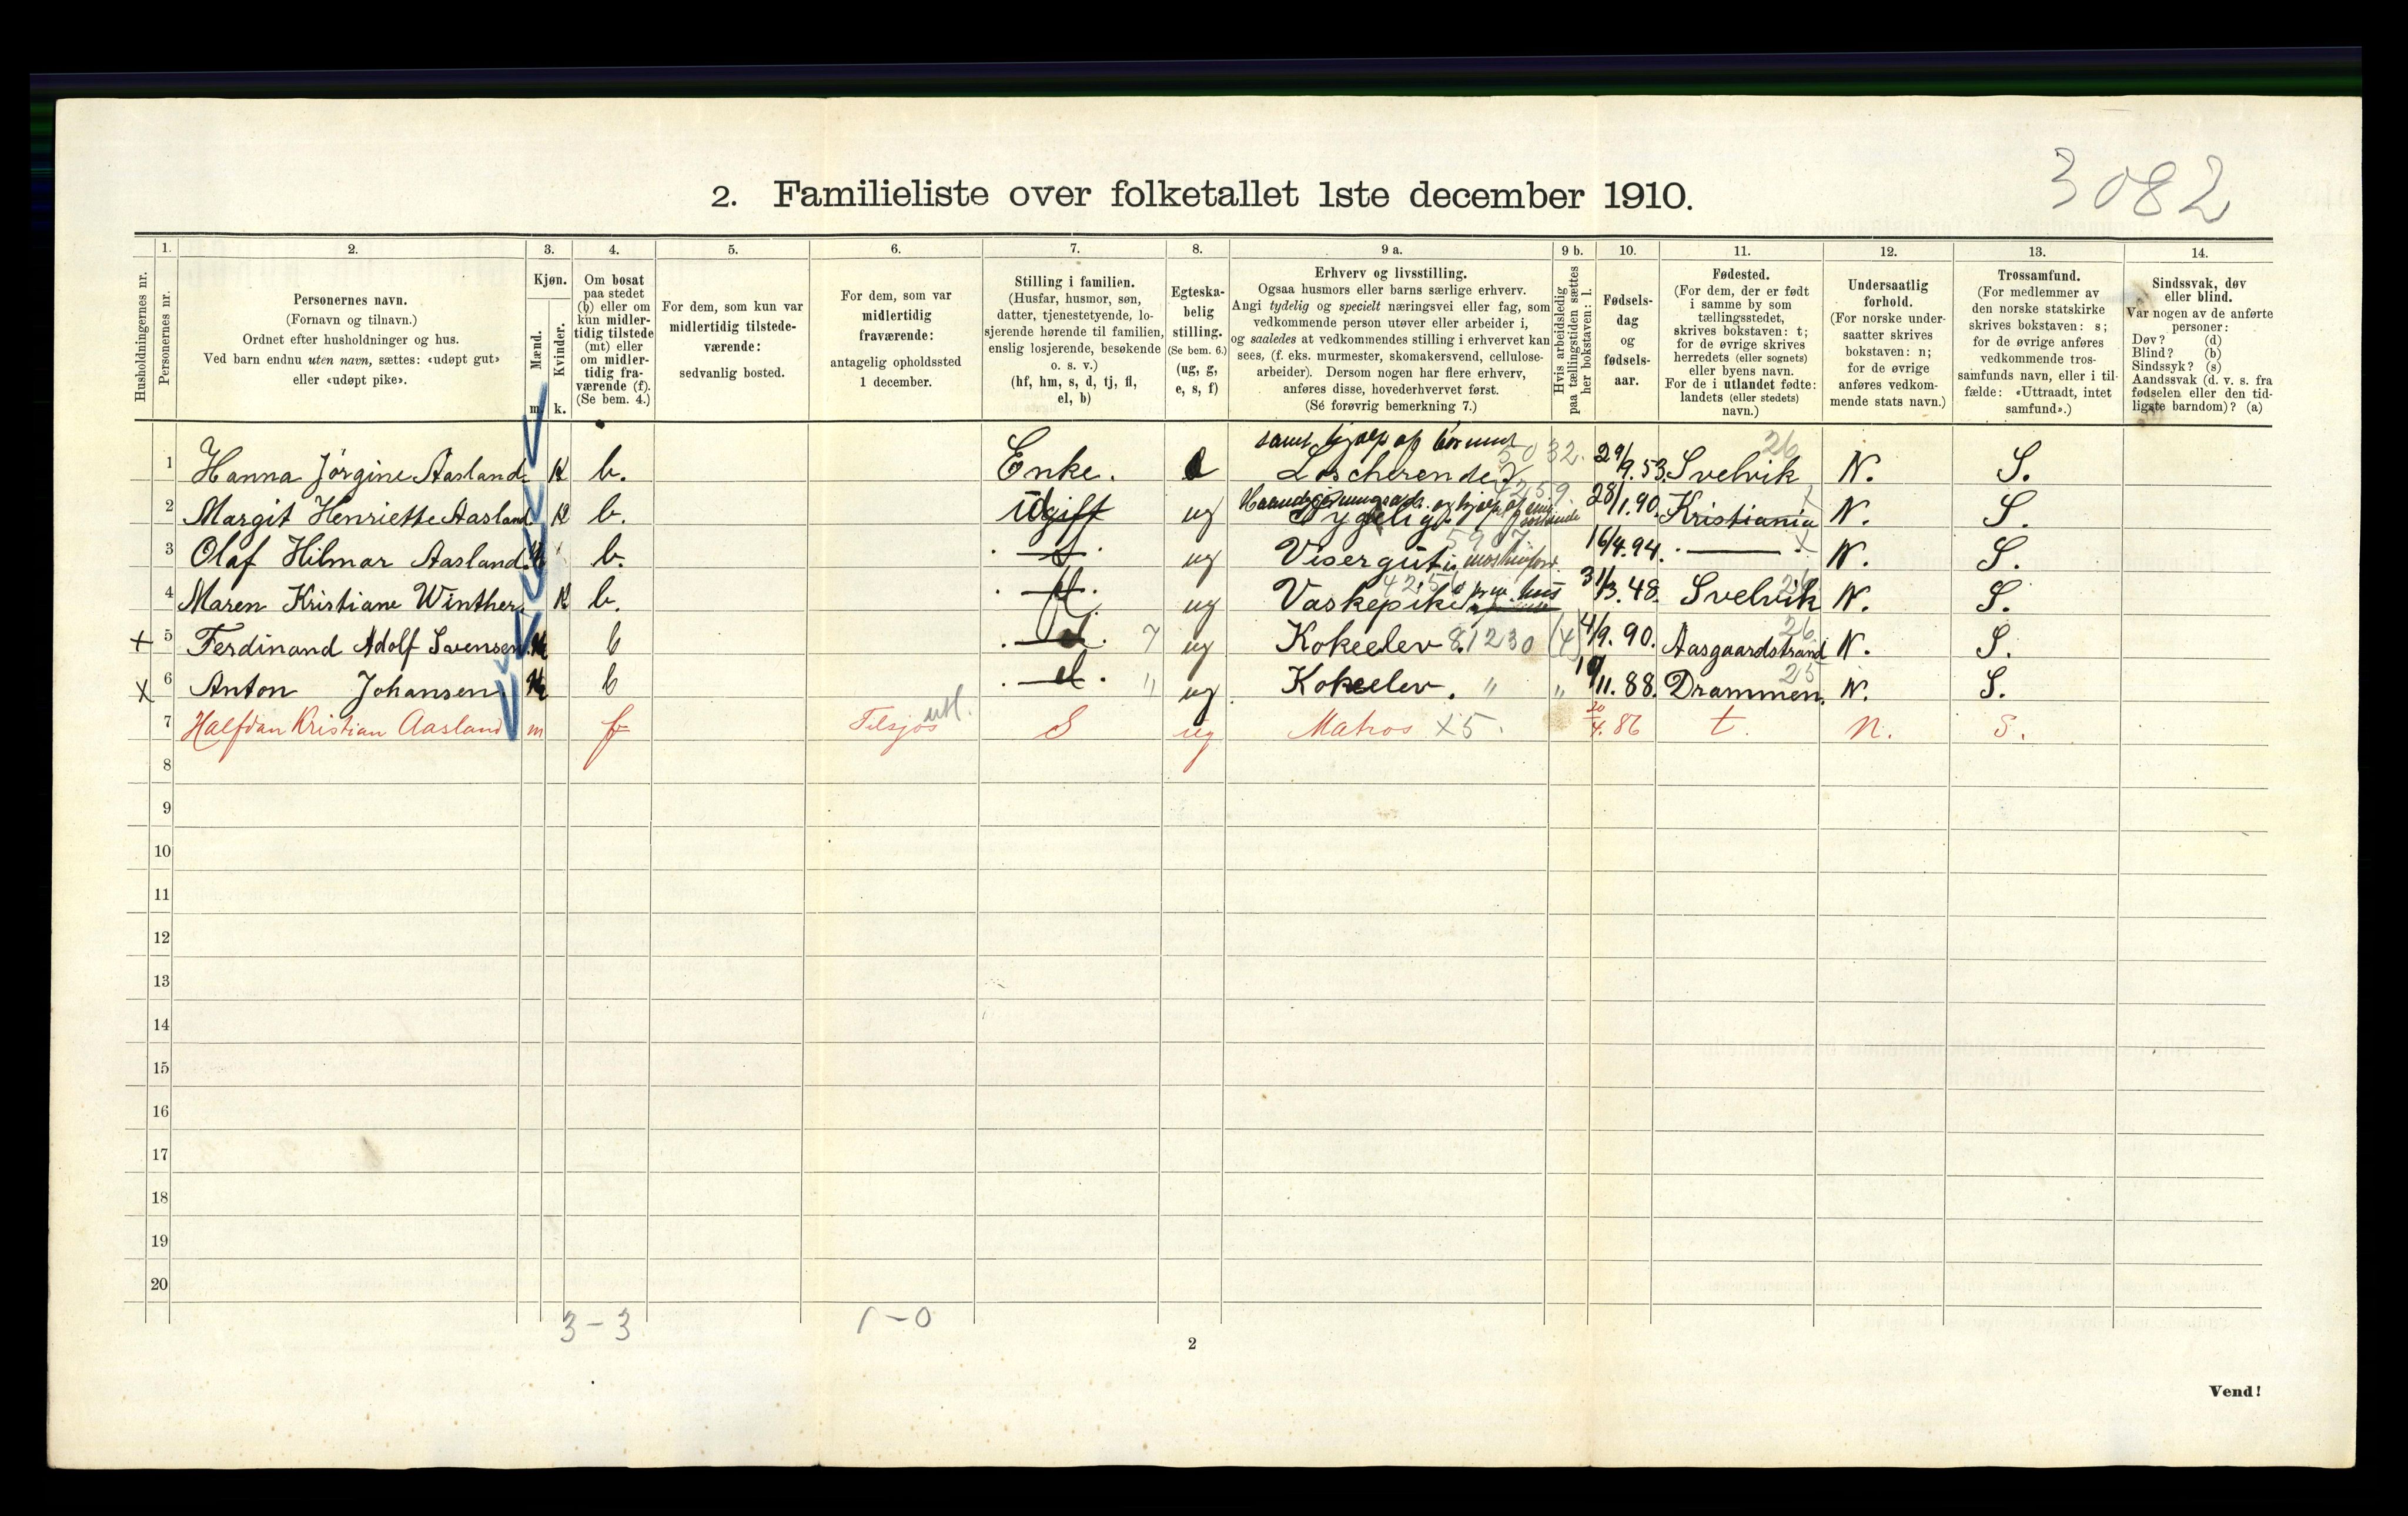 3082
2. Familieliste over folketallet 1ste december 1910.
1. 2. 3. 4. 5. 6. 7. 8. 9 a. 9 b. 10. 11. 12. 13. 14.
Husholdningernes nr.
Personernes nr.
Personernes navn.
(Fornavn og tilnavn.)
Ordnet efter husholdninger og hus.
Ved barn endnu uten navn, sættes: «udøpt gut»
eller «udøpt pike».
Kjøn.
Mænd.
Kvinder.
m. k.
Om bosat
paa stedet
(b) eller om
kun midler-
tidig tilstede
(mt) eller
om midler-
tidig fra-
værende (f).
(Se bem. 4.)
For dem, som kun var
midlertidig tilstede-
værende:
sedvanlig bosted.
For dem, som var
midlertidig
fraværende:
antagelig opholdssted
1 december.
Stilling i familien.
(Husfar, husmor, søn,
datter, tjenestetyende, lo-
sjerende hørende til familien,
enslig losjerende, besøkende
o. s. v.)
(hf, hm, s, d, tj, fl,
el, b)
Egteska-
belig
stilling.
(Se bem. 6.)
(ug, g,
e, s, f)
Erhverv og livsstilling.
Ogsaa husmors eller barns særlige erhverv.
Angi tydelig og specielt næringsvei eller fag, som
vedkommende person utøver eller arbeider i,
og saaledes at vedkommendes stilling i erhvervet kan
sees, (f. eks. murmester, skomakersvend, cellulose-
arbeider). Dersom nogen har flere erhverv,
anføres disse, hovederhvervet først.
(Se forøvrig bemerkning 7.)
Hvis arbeidsledig
paa tællingstiden sættes
her bokstaven: l.
Fødsels-
dag
og
fødsels-
aar.
Fødested.
(For dem, der er født
i samme by som
tællingsstedet,
skrives bokstaven: t;
for de øvrige skrives
herredets (eller sognets)
eller byens navn.
For de i utlandet fødte:
landets (eller stedets)
navn.)
Undersaatlig
forhold.
(For norske under-
saatter skrives
bokstaven: n;
for de øvrige
anføres vedkom-
mende stats navn.)
Trossamfund.
(For medlemmer av
den norske statskirke
skrives bokstaven: s;
for de øvrige anføres
vedkommende tros-
samfunds navn, eller i til-
fælde: «Uttraadt, intet
samfund».)
Sindssvak, døv
eller blind.
Var nogen av de anførte
personer:
Døv? (d)
Blind? (b)
Sindssyk? (s)
Aandssvak (d. v. s. fra
fødselen eller den tid-
ligste barndom)? (a)
samt hjælp af
1 Hanna Jørgine Aasland K b. Enke. e 5032. 29/9. 53. Svelvik 26 N. S.
2 Margit Henriette Aasland. K b. Ugift ug 4259. 28/1. 90. Kristiania N. S.
3 Olaf Hilmar Aasland. b. s ug Visergut 16/4. 94. — N. S.
4 Maren Kristiane Winther. K b. ug Vaskepike priv. hus 31/3. 48. Svelvik N. S.
+ 5 Ferdinand Adolf Svensen. b 7 ug Kokeelev 81230 (4) 4/9. 90. Aasgaardstrand 26 N. S.
x 6 Anton Johansen b el. " ug Kokeelev. " " /11. 88. Drammen. 25 N. S.
7 Halfdan Kristian Aasland m f Tilsjøs utl. S ug Matros X5. 20/4. 86 t. n. S.
8
9
10
11
12
13
14
15
16
17
18
19
20
3 – 3 1 – 0
2
Vend!